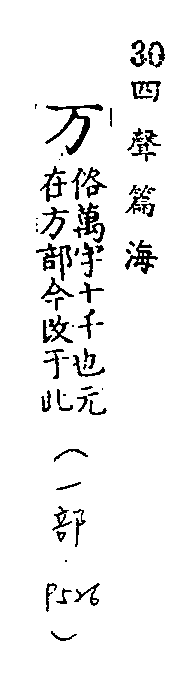 30四聲篇海
万
俗萬字十千也元
在方部今改于此
(一部.P526)